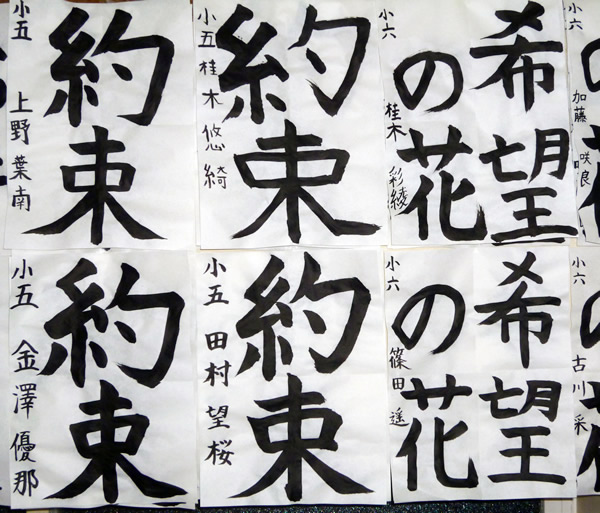 約束
小五 上野葉南
約束
小五 桂木悠綺
希望
の花
小六 桂木彩綾
小六 加藤咲良
約束
小五 金澤優那
約束
小五 田村望桜
希望
の花
小六 篠田遥
小六 古川采